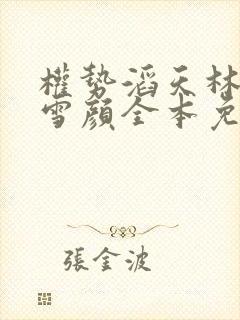 權勢滔天林
雪顏全本免
張金波